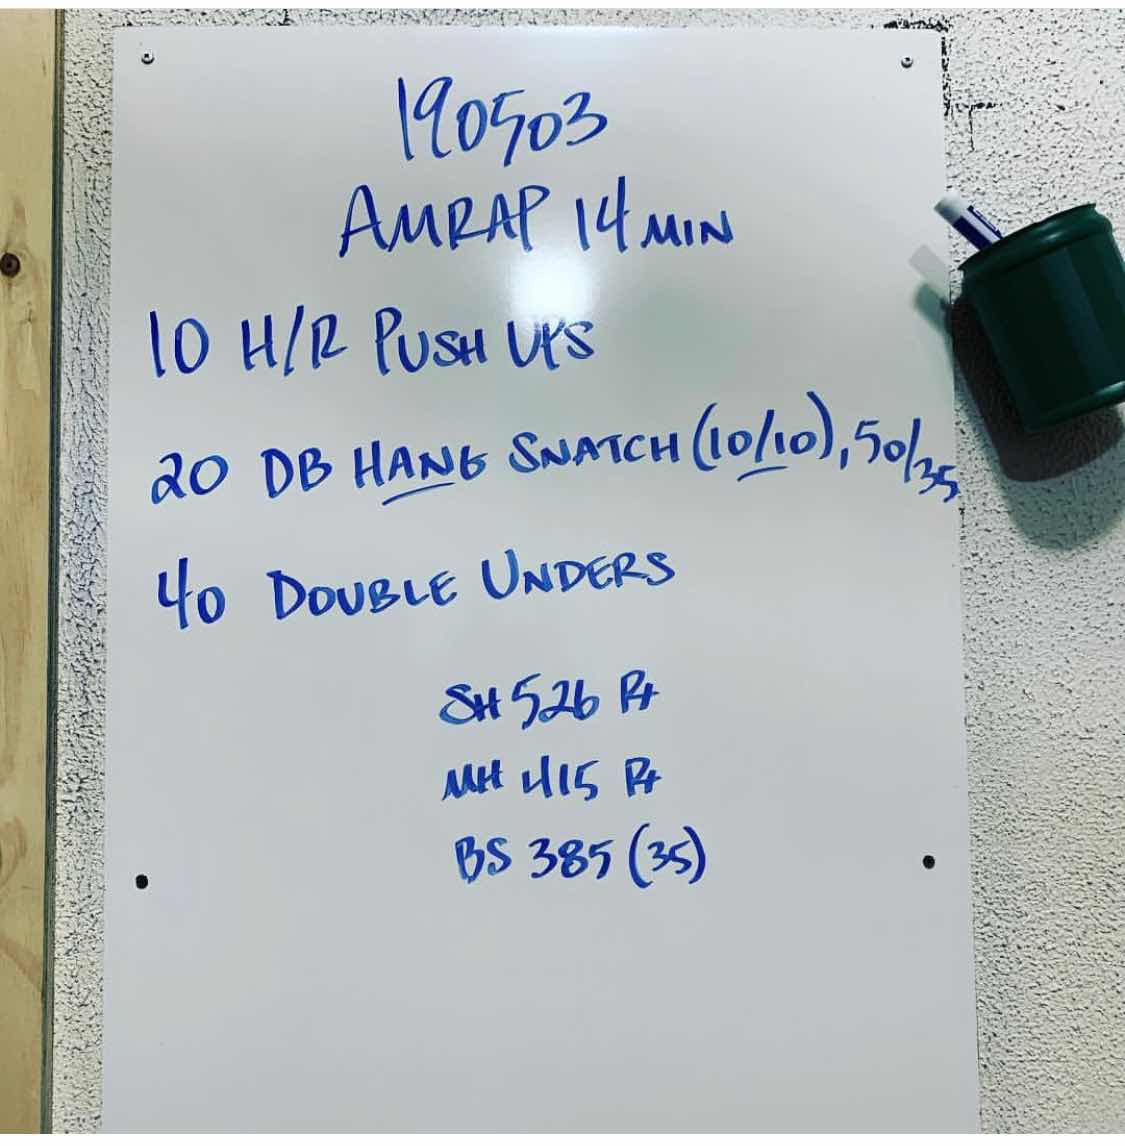 190503
AMRAP 14 MIN
10 H/R PUSH UPS
20 DB HANG SNATCH (10/10), 50/35
40 DOUBLE UNDERS
SH 526 Rx
MH 415 Rx
BS 385 (35)